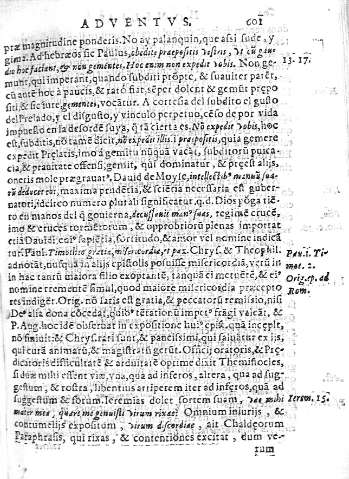 ADVENTVS. 601
præ magnitudine ponderis. No ay palanquin, que assi sude, y
gima. Ad hebræos sic Paulus, obedite præpositis vestris, vt cū gau-
dio hoc faciant, & non gementes. Hoc enim non expedit vobis. Non ge- 13. 17.
munt, qui imperant, quando subditi prōpte, & suauiter parēt,
cū antē hoc à paucis, & rarò fiat, sēper dolēt & gemūt præpo
siti, & sic iure, gementes, vocātur. A cortesia del subdito el gusto
del Prelado, y el disgusto, y vinculo perpetuo, cēso de por vida
impuesto en la desordē suya, q̄ tā cierta es. Nō expedit vobis, hoc
est, subditis, nō tamē dicit, nō expedit illis. i præpositis, quia gemere
expedit Prælatis, imò à gemitu nūquā vacāt, subditorū pusca-
& prauitate offensi, gemit, qui dominatur, & præest alijs,
oneris mole prægrauatᵒ. Dauid de Moyse, intellectibᵒ manuū sua-
rū deducet eos, maxima prudētia, & sciētia necessaria est guber-
natori, idcirco numero plurali significatur, q.d. Dios pōga tiē-
to en manos del q̄ gouierna, decussonis manᵒ suas, regimē crucē,
imò & cruces tormētorum, & opprobriorū plenas importat
etiā Dauidi eoiᵒ sapiētia, fortitudo, & amor vel nomine indicā
tur. Paul. Timotheo gratia, misericordia, et pax. Chrys. & Theophil. Pau. 1. Ti-
adnotāt, nusquā in alijs epistolis posuisse misericordiā, verū in mot. 2.
in hac tantū maiora filio exoptantē, tanquā ei metuerē, & ei Orig. ep. ad
nomine tremente simul, quod maiore misericordia præcepto Rom.
res indiget. Orig. nō satis est gratia, & peccatorū remissio, nisi
Deᵒ alia dona cōcedat, quibᵒ
P. Aug. hoc idē obseruat in expositione huiᵒ epist. quā incepit,
nō finiuit: & Chrys. rari sunt, & paucissimi, qui saluātur ex ijs,
qui curā animarū, & magistratū gerūt. Officij oratoris, & Præ-
dicatoris difficultatē & arduitatē optime dixit Themistocles,
si duæ mihi essent viæ, vna, qua ad inferos, altera, qua ad sug-
gestum, & rostra, libentius arriperem iter ad inferos, quā ad
suggestum & forum. Ieremias dolet sortem suam, væ mihi Ierem. 15.
mater mea, quare me genuisti virum rixæ? Omnium iniurijs, &
contumelijs expositum, virum discordiæ, ait Chaldeorum
Paraphrasis, qui rixas, & contentiones excitat, dum ve-
rum